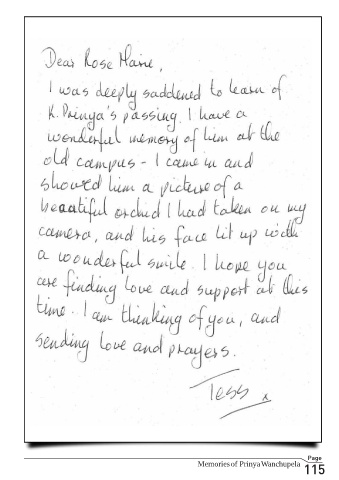 Dear Rose Marie,
I was deeply saddened to learn of
K. Prinya's passing. I have a
wonderful memory of him at the
old campus - I came in and
showed him a picture of a
beautiful orchid I had taken on my
camera, and his face lit up with
a wonderful smile. I hope you
are finding love and support at this
time. I am thinking of you, and
sending love and prayers.
Tess x
Memories of Prinya Wanchupela
Page
115